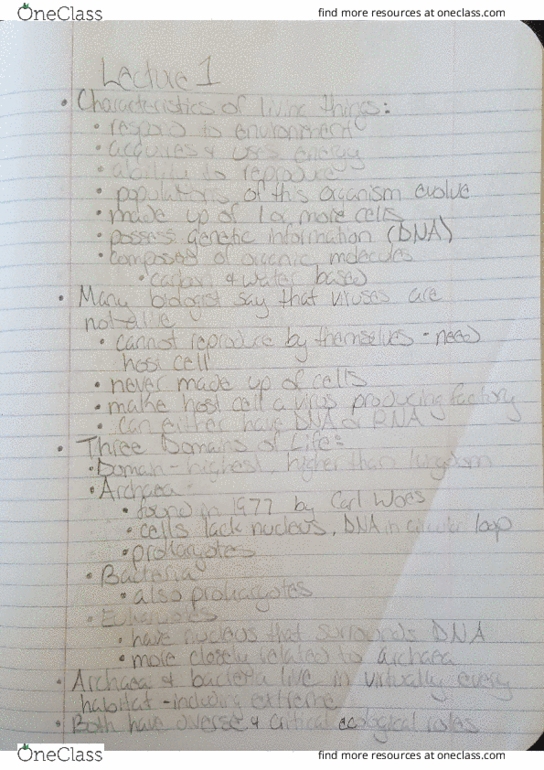 OneClass
find more resources at oneclass.com
Lecture 1
• Characteristics of living things:
• respond to environment
• acquires & uses energy
• ability to reproduce
• populations of this organism evolve
• made up of 1 or more cells
• possess genetic information (DNA)
• composed of organic molecules
• carbon & water based
• Many biologist say that viruses are
not alive
• cannot reproduce by themselves - need
host cell
• never made up of cells
• make host cell a virus producing factory
• can either have DNA or RNA
• Three Domains of Life:
• Domain - highest, higher than kingdom
• Archaea
• found in 1977 by Carl Woes
• cells lack nucleus, DNA in circular loop
• prokaryotes
• Bacteria
• also prokaryotes
• Eukaryotes
• have nucleus that surrounds DNA
• more closely related to archaea
• Archaea & bacteria live in virtually every
habitat - including extreme
• Both have diverse & critical ecological roles
OneClass
find more resources at oneclass.com